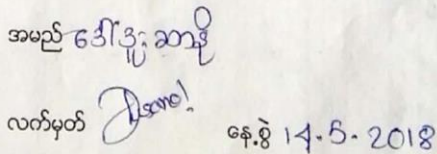 အမည် ဒေါ်ဒူးဆာနို
လက်မှတ်
နေ့စွဲ 14.5.2018